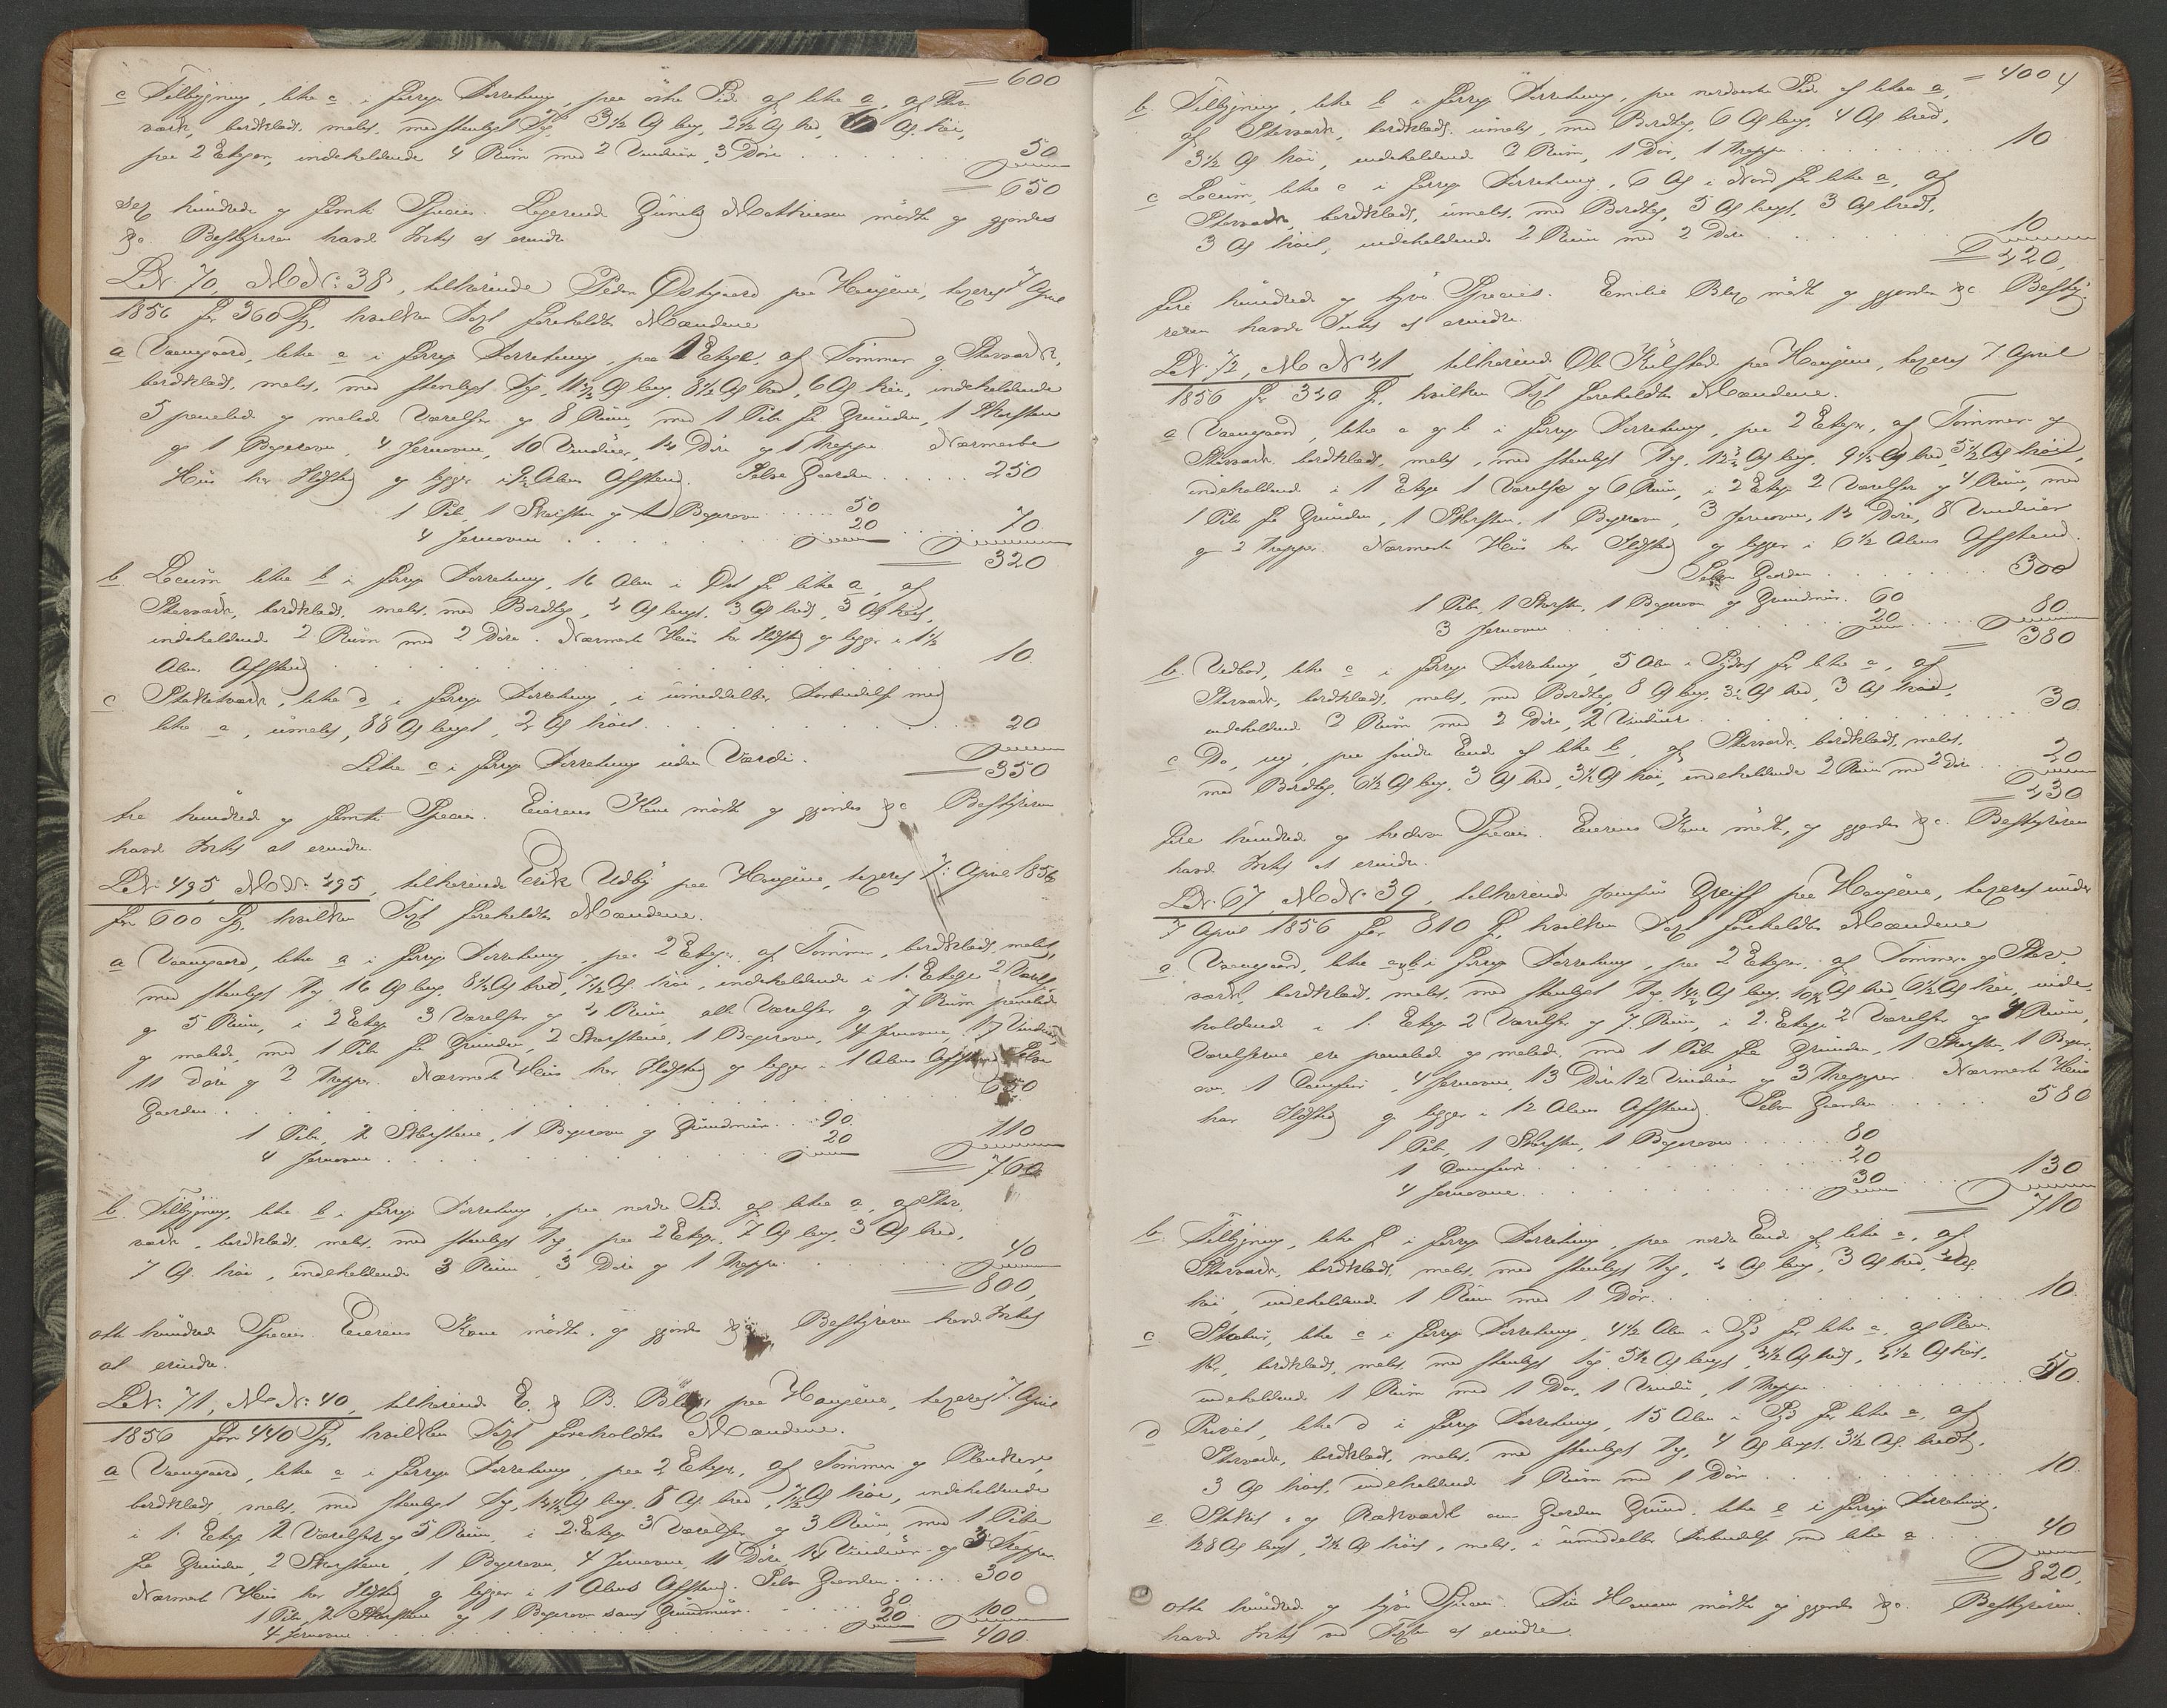 = 600
c Tilbygning, litr. c i forrige Forretning, paa østre Side af litr. a, af Stav-
værk, bordklædt, malet, med steenlagt Tag, 3 1/2 Al lang, 2 1/2 Al bred, Al. høi,
paa 2 Etager, indeholdende 4 Rum med 2 Vinduer, 3 Døre . . . . 50
= 650
sex hundrede og femti Species. Logerende Gunild Mathisen mødte og gjordes
&c. Bestyreren havde Intet at erindre.
LN. 70, MN: 38, tilhørende Peder Østgaard paa Haugene, taxeret 7 April
1856 for 360 Sp, hvilken Taxt foreholdtes Mændene
a Vaaningsgaard, litr. a i forrige Forretning, paa 1 Etage, af Tømmer og Stavværk,
bordklædt, malet, med steenlagt Tag, 11 1/2 Al lang, 8 1/2 Al bred, 6 Al høi, indeholdende
5 panelede og malede Værelser og 8 Rum, med 1 Pibe fra Grunden, 1 Skorsteen
og 1 Bagerovn, 4 Jernovne, 10 Vinduer, 14 Døre og 1 Trappe. Nærmeste
Huus har Ildsted og ligger i 2 Alens Afstand. Selve Gaarden . . . . . 250
1 Pibe, 1 Skorsteen og 1 Bagerovn . . . . . 50
4 Jernovne . . . . . 20 . . . . 70
= 320
b. Locum litr. b i forrige Forretning, 16 Alen i Øst for litr. a, af
Stavværk, bordklædt, malet, med Bordtag, 4 Al langt, 3 Al bredt, 3 Al høit,
indeholdende 2 Rum med 2 Døre. Nærmeste Huus har Ildsted og ligger i 1 1/2
Alens Afstand . . . . . 10
c Stakitværk, litr. d i forrige Forretning, i umiddelbar Forbindelse med
litr. a, umalet, 88 Al langt, 2 Al høit . . . . . 20
Litr. c i forrige Forretning uden Værdi.
= 350
tre hundrede og femti Species. Eierens Kone mødte og gjordes &c Bestyreren
havde Intet at erindre.
LN: 495, MN: 495, tilhørende Erik Udby paa Haugene, taxeret 7: April 1856
for 600 Sp, hvilken Taxt foreholdtes Mændene.
a Vaaningsgaard, litr. a i forrige Forretning, paa 2 Etager, af Tømmer, bordklædt, malet,
med steenlagt Tag, 16 Al lang, 8 1/2 Al bred, 7 1/2 Al høi, indeholdende i 1. Etage 2 Værelser
og 5 Rum, i 2 Etage 3 Værelser og 4 Rum, alle Værelser og 7 Rum panelede
og malede, med 1 Pibe fra Grunden, 2 Skorstene, 1 Bagerovn, 4 Jernovne, 17 Vinduer,
11 Døre og 2 Trapper. Nærmeste Huus har Ildsted og ligger i 1 Alens Afstand. Selve
Gaarden . . . . . 650
1 Pibe, 2 Skorstene, 1 Bagerovn og Grundmuur . . 90
4 Jernovne . . . . . 20 110
= 760
b. Tilbygning, litr. b i forrige Forretning, paa nordre Side af litr. a, af Stav-
værk, bordklædt, malet, med steenlagt Tag, paa 2 Etager, 7 Al lang, 3 Al bred,
7 Al. høi, indeholdende 3 Rum, 3 Døre og 1 Trappe . . . . . 40
= 800,
otte hundrede Species. Eierens Kone mødte, og gjordes &c. Bestyreren havde Intet
at erindre.
LN. 71, MN: 40, tilhørende E. & B. Blix paa Haugene, taxeret 7. April
1856 for 440 Sp, hvilken Taxt foreholdtes Mændene.
a Vaaningsgaard, litr. a i forrige Forretning, paa 2 Etager, af Tømmer og Planker,
bordklædt, malet, med steenlagt Tag, 13 1/2 Al lang, 8 Al bred, 7 1/2 Al høi, indeholdende
i 1. Etage 2 Værelser og 5 Rum, i 2. Etage 3 Værelser og 3 Rum, med 1 Pibe
fra Grunden, 2 Skorstene, 1 Bagerovn, 4 Jernovne, 11 Døre, 14 Vinduer og 3 Trapper.
Nærmeste Huus har Ildsted og ligger i 1 Alens Afstand. Selve Gaarden . . . . . 300
1 Pibe, 2 Skorstene og 1 Bagerovn samt Grundmuur . . . 80
4 Jernovne . . . . . 20 100
= 400.
= 400 4
b. Tilbygning, litr. b i forrige Forretning, paa nordvestre Side af litra a,
af Stavværk, bordklædt, umalet, med Bordtag, 6 Al lang, 4 Al bred,
3 1/2 Al høi, indeholdende 2 Rum, 1 Dør, 1 Trappe . . . . . 10
c Locum, litr. c i forrige Forretning, 6 Al i Nord for litr. a, af
Stavværk, bordklædt, umalet, med Bordtag, 5 Al langt, 3 Al bredt,
3 Al høit, indeholdende 2 Rum med 2 Døre . . . . . 10
= 420,
fire hundrede og tyve Species. Emilie Blix mødte og gjordes &c Besty-
reren havde Intet at erindre.
LN. 72, MN 41 tilhørende Ole Kulstad paa Haugene, taxeret 7. April
1856 for 340 Sp, hvilken Taxt foreholdtes Mændene.
a Vaaningsgaard, litr. a og b i forrige Forretning, paa 2 Etager, af Tømmer og
Stavværk, bordklædt, malet, med steenlagt Tag, 12 3/4 Al lang, 9 1/2 Al bred, 5 1/2 Al høit,
indeholdende i 1 Etage 1 Værelse og 6 Rum, i 2 Etage 2 Værelser og 4 Rum, med
1 Pibe fra Grunden, 1 Skorsten, 1 Bagerovn, 3 Jernovne, 14 Døre, 8 Vinduer
og 2 Trapper. Nærmeste Huus har Ildsted og ligger i 6 1/2 Alens Afstand.
Selve Gaarden . . . . . 300
1 Pibe, 1 Skorsten, 1 Bagerovn og Grundmuur. 60
3 Jernovne . . . . . 20 80
= 380
b. Vedbod, litr. c i forrige Forretning, 5 Alen i Sydost for litr. a, af
Stavværk, bordklædt, malet, med Bordtag, 8 Al lang, 3 1/2 Al bred, 3 Al høi,
indeholdende 2 Rum med 2 Døre, 2 Vinduer . . . . . 30
c Do, ny, paa søndre Ende af litr. b, af Stavværk, bordklædt, malet,
med Bordtag, 6 1/2 Al lang, 3 Al bred, 3 1/2 Al høi, indeholdende 2 Rum med 2 Døre . . 20
= 430
fire hundrede og tredive Species. Eierens Kone mødte, og gjordes &c. Bestyreren
havde Intet at erindre.
LN. 67, MN. 39, tilhørende Jomfru Greiff paa Haugene, taxeret under
7 April 1856 for 810 Sp, hvilken Taxt foreholdtes Mændene
a Vaaningsgaard, litr. a & b i forrige Forretning, paa 2 Etager, af Tømmer og Stav-
værk, bordklædt, malet, med steenlagt Tag, 14 1/2 Al lang, 10 1/2 Al bred, 6 1/2 Al høi, inde-
holdende i 1. Etage 2 Værelser og 7. Rum, i 2. Etage 2 Værelser og 7 Rum,
Værelserne ere panelede og malede, med 1 Pibe fra Grunden, 1 Skorsten, 1 Bager-
ovn, 1 Comfur, 4 Jernovne, 13 Døre 12 Vinduer og 3 Trapper. Nærmeste Huus
har Ildsted og ligger i 12 Alens Afstand. Selve Gaarden . . . . . 580
1 Pibe, 1 Skorsten, 1 Bagerovn . . . . . 80
1 Comfur . . . . . 20
4 Jernovne . . . . . 30 130
= 710
b. Tilbygning, litr. f i forrige Forretning, paa nordre Ende af litr. a, af
Stavværk, bordklædt, malet, med steenlagt Tag, 4 Al lang, 3 Al bred, Al
høi, indeholdende 1 Rum med 1 Dør . . . . . 10
c. Stabur, litr. c i forrige Forretning, 4 1/2 Alen i Syd for litr. a, af Plan-
ker, bordklædt, malet, med steenlagt Tag, 5 1/2 Al langt, 4 1/2 Al bredt, 4 1/2 Al høit,
indeholdende 1 Rum med 1 Dør, 1 Vindue, 1 Trappe . . . . . 50
d Privet, litr. d i forrige Forretning, 15 Alen i Syd for litr. a, af
Stavværk, bordklædt, malet, med steenlagt Tag, 4 Al langt, 3 1/2 Al. bredt,
3 Al høit, indeholdende 1 Rum med 1 Dør . . . . . 10
e Stakit- og Rækværk om Gaardens Grund, litr. e i forrige Forretning,
128 Al langt, 2 1/2 Al høit, malet, i umiddelbar Forbindelse med litr. a . . . 40
= 820,
otte hundrede og tyve Species. Hansen mødte og gjordes &c. Bestyreren
havde Intet ved Taxten at erindre.